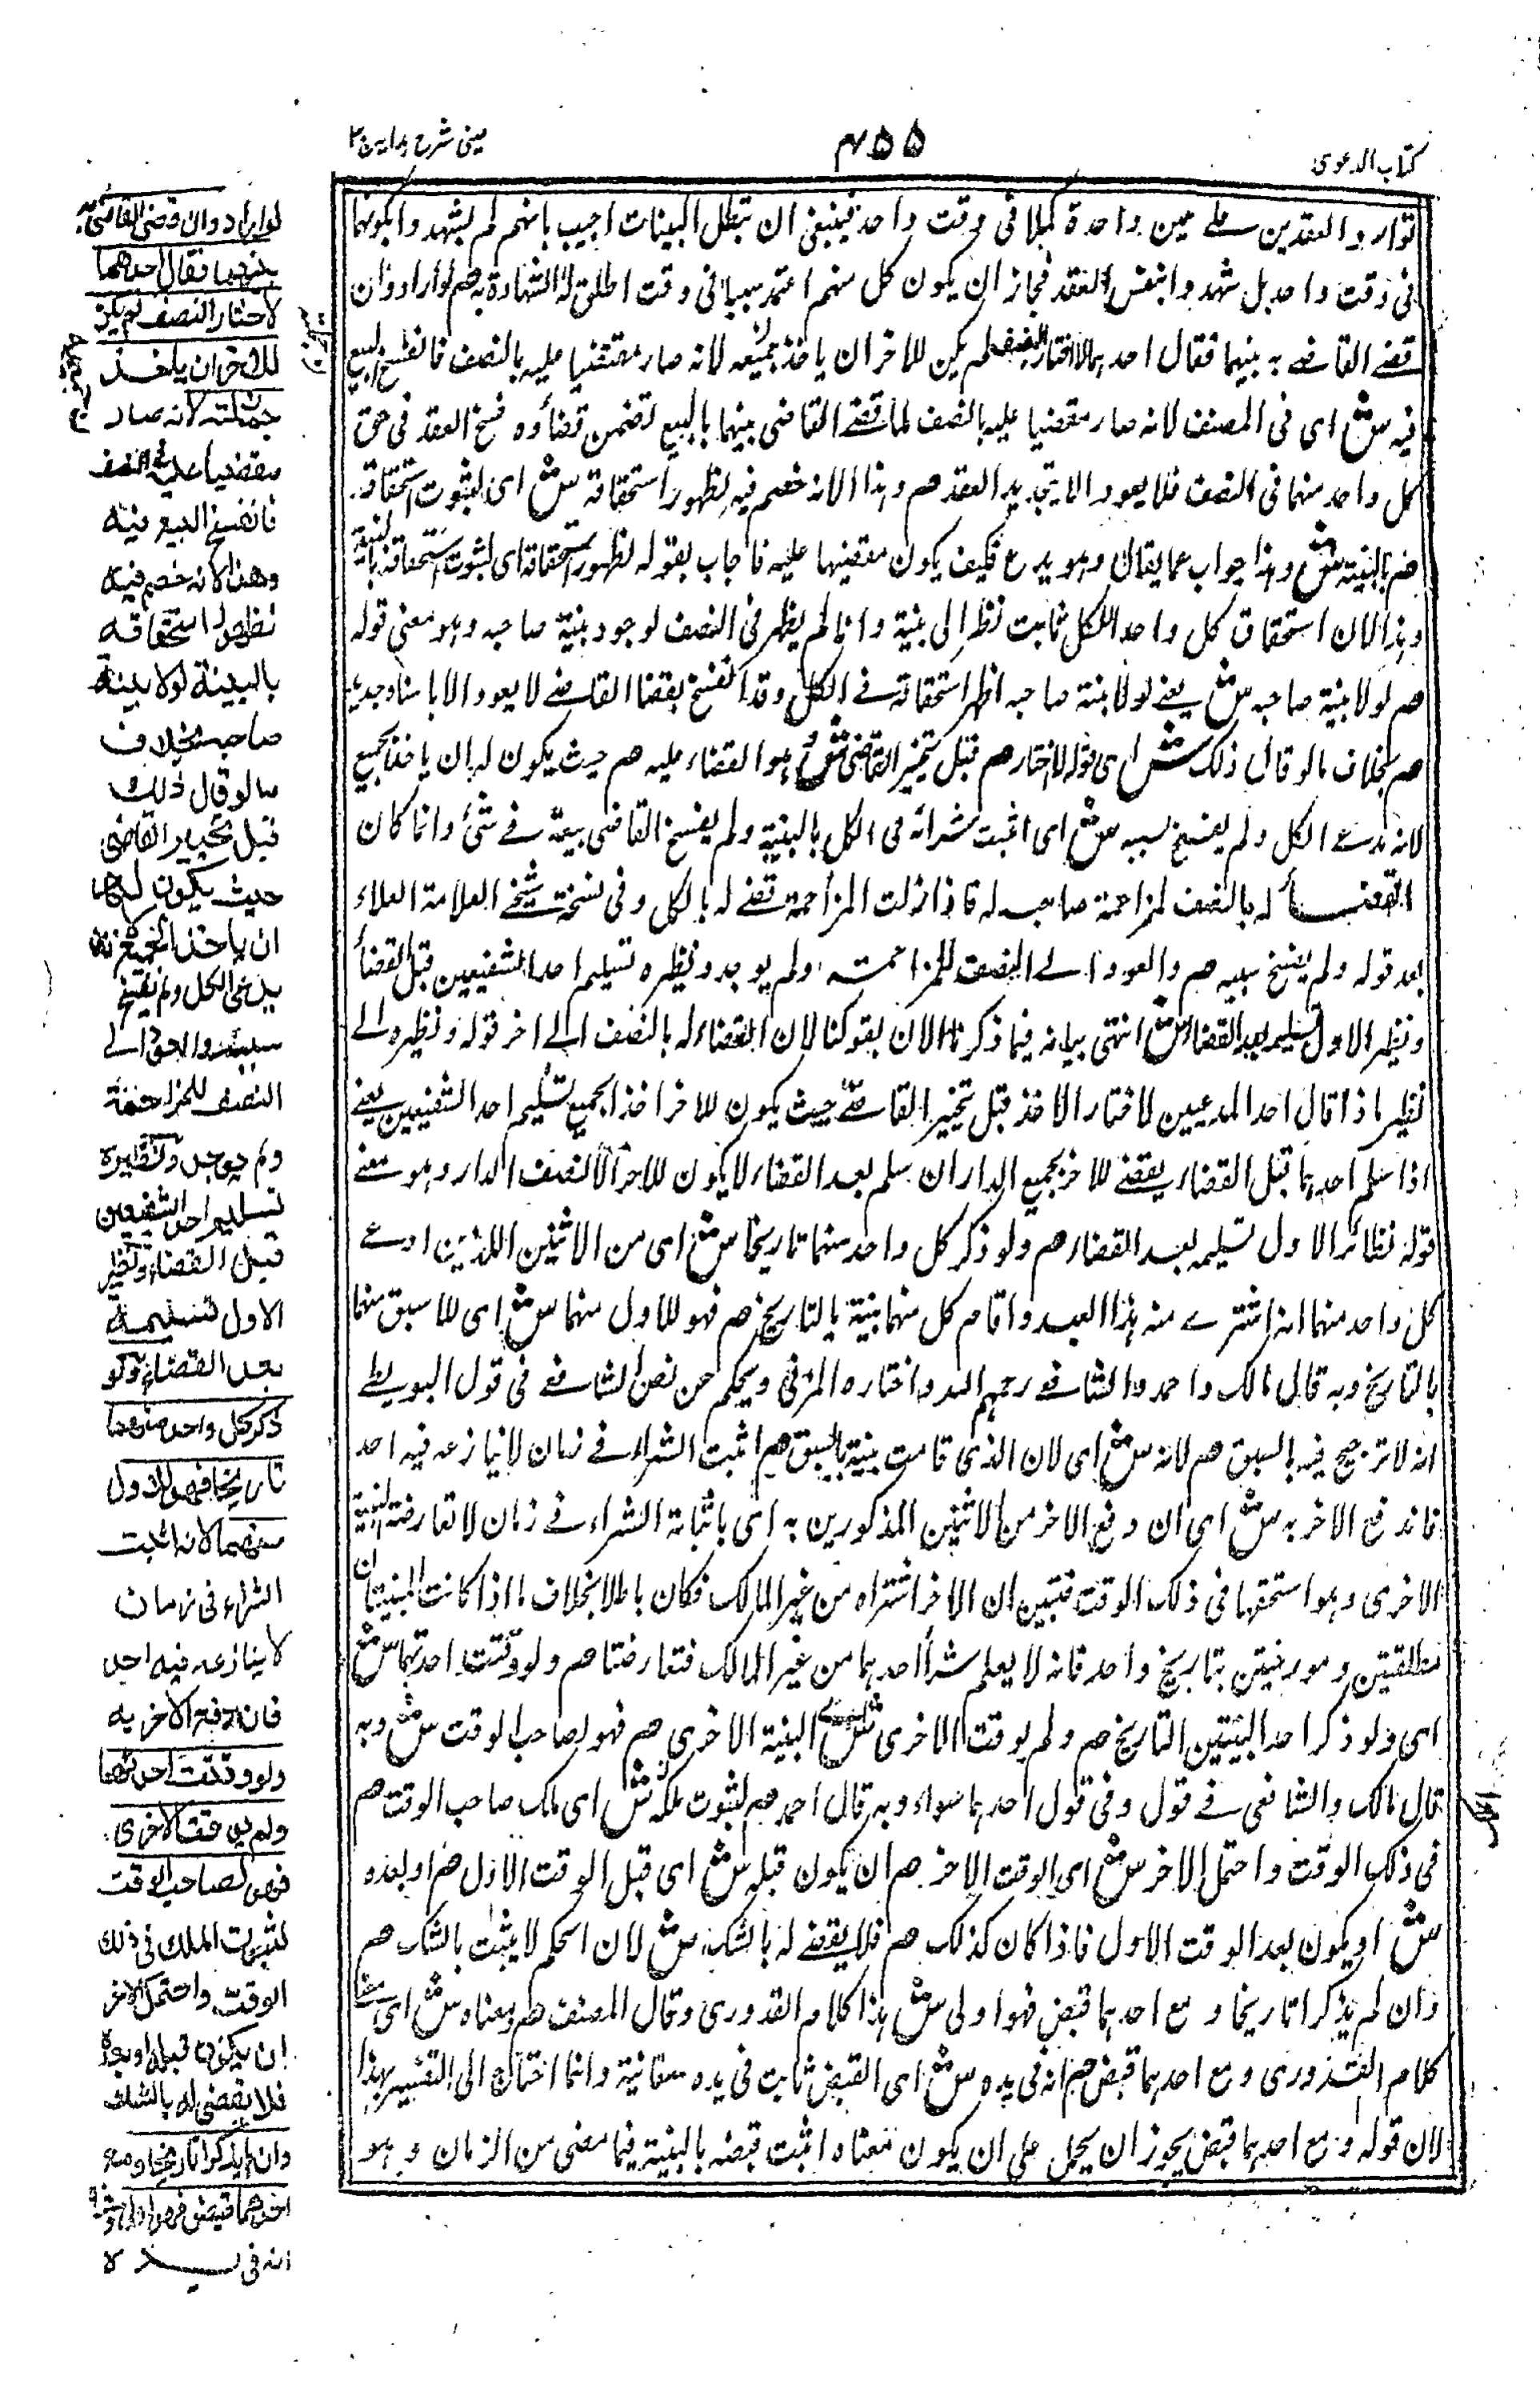 كتاب الدعوى
٤٥٥
عينى شرح هدايه ج٣
توارد العقدين على عين واحدة كملا فى وقت واحد فينبغى ان تبطل البينات اجيب بانهم لم يشهدوا بكونهما
فى وقت واحد بل شهدوا بنفس العقد فجاز ان يكون كل منهم اعتمد سببا فى وقت اطلق له الشهادة به هم لوارادوان
قضے القاضے به بينهما فقال احدهما لا اختار النصف لم يكن للاخر ان ياخذ جميعه لانه صار مقتضيا عليه بالنصف فانفسخ البيع
فيه سش اى فى المصنف لانه صار مقضيا عليه بالنصف لما قضے القاضى بينهما بالبيع تضمن قضاؤه فسخ العقد فى حق
كل واحد منهما فى النصف فلا يعود الا بتجديد العقد هم وهذا الانه خصم فيه لظهور استحقاقه سش اى لثبوت استحقاقه
هم بالبينة سش وهذا جواب عما يقال وهو يدع فكيف يكون مقضيا عليه فاجاب بقوله لظهور استحقاقه اى لثبوت استحقاقه بالبينة
وهذا لان استحقاق كل واحد للكل ثابت نظرا الى بنية وانما لم يظهر فى النصف لوجود بنية صاحبه وهو معنى قوله
هم لولا بنية صاحبه سش يعنے لولا بنية صاحبه اظهر استحقاقه فے الكل وقد انفسخ بقضا القاضے لا يعود الا باسناد جديد
هم بخلاف مالو قال ذلك سش اى قوله لا اختار هم قبل تخير القاضى سش وهو القضاء عليه هم حيث يكون له ان ياخذ الجميع
لانه يدعے الكل ولم يفسخ سببه سش اى اثبت شرائه فى الكل بالبنية ولم يفسخ القاضى بيعه فے شئ وانما كان
القضـأ له بالنصف لمزاحمة صاحبه له فاذا زالت المزاحمة قضے له بالكل وفى نسخة شيخے العلامة العلاء
بعد قوله ولم يفسخ سببه هم والعود الے النصف للمزاحمته ولم يوجد ونظيره تسليم احد الشفيعين قبل القضأ
ونظير الاول تسليمه بعد القضاء سش انتهى بيانه فيما ذكرنا الان بقولنا لان القضاء له بالنصف الے اخر قوله ونظيره الے
نظير ما ذا قال احد المدعيين لا اختار الاخذ قبل تخير القاضے حيث يكون للاخر اخذ الجميع تسليم احد الشفيعين يعنے
اذا سلم احدهما قبل القضاء يقضے للاخر بجميع الدار ان سلم بعد القضاء لا يكون للاخر الا نصف الدار وهو معنے
قوله نظائر الاول تسليمه بعد القضاء هم ولو ذكر كل واحد منهما تاريخا سش اى من الاثنين اللذين ادعے
كل واحد منهما انه اشترے منه هذا العبد واقام كل منهما بنية بالتاريخ هم فهو للاول منهما سش اى للاسبق منهما
بالتاريخ وبه قال مالك واحمد والشافعے رحمهم الله واختاره المزنى ويحكم عن نص الشافعے فى قول البويطے
انه لا ترجيح فيه بالسبق هم لانه سش اى لان الذى قامت بنية بالسبق هم اثبت الشراء فے زمان لا ينازعه فيه احد
فاندفع الاخر به سش اى ان دفع الاخر من الاثنين المذكورين به اى باثباته الشراء فے زمان لا تعارضه البنية
الاخرى وهو استحقها فى ذلك الوقت فتبين ان الاخر اشتراه من غير المالك فكان باطلا بخلاف ما اذا كانت البينتان
مطلقتين ومورختين بتاريخ واحد فانه لا يعلم شرأ احدهما من غير المالك فتعارضتا هم ولو وقتت احدتهما سش
اى ولو ذكر احد البينتين التاريخ هم ولم يوقت الاخرى سش البنية الاخرى هم فهو لصاحب الوقت سش وبه
قال مالك والشافعى فے قول وفى قول احدهما سواء وبه قال احمد هم لثبوت ملكه سش اى ملك صاحب الوقت هم
فى ذلك الوقت واحتمل الاخر سش اى الوقت الاخر هم ان يكون قبله سش اى قبل الوقت الاول هم او بعده
سش او يكون بعد الوقت الاول فاذا كان كذلك هم فلا يقضے له بالشك سش لان الحكم لا يثبت بالشك هم
وان لم يذكرا تاريخا ومع احدهما قبض فهو اولى سش هذا كلام القدورى وقال المصنف هم ومعناه سش اى معنا
كلام القدورى ومع احدهما قبض هم انه فى يده سش اى القبض ثابت فى يده معانية وانما احتاج الى التفسير بهذا
لان قوله ومع احدهما قبض يجوز ان يحمل على ان يكون معناه اثبت قبضه بالبنية فيما مضى من الزمان وهو
لوارادوان قضى القاضى به
بينهما فقال احدهما
لا اختار النصف لم يكن
للاخران ياخذ
جملته لانه صار
مقضيا عليه فى النصف
فانفسخ البيع فيه
وهذا لانه خصم فيه
لظهور استحقاقه
بالبينة لولا بينة
صاحبه بخلاف
مالو قال ذلك
قبل تخيير القاضى
حيث يكون له
ان ياخذ الجميع لانه
يدعى الكل ولم يفسخ
سببه والعود الے
النصف للمزاحمة
ولم يوجد ونظيره
تسليم احد الشفيعين
قبل القضاء ونظير
الاول تسليمه
بعد القضاء ولو
ذكر كل واحد منهما
تاريخا فهو للاول
منهما لانه اثبت
الشراء فى زمان
لا ينازعه فيه احد
فاندفع الاخر به
ولو وقتت احدتهما
ولم يوقت الاخرى
فهو لصاحب الوقت
لثبوت الملك فى ذلك
الوقت واحتمل الاخر
ان يكون قبله او بعده
فلا يقضى له بالشك
وان لم يذكرا تاريخا ومع
احدهما قبض فهو اولى
انه فى يـــده